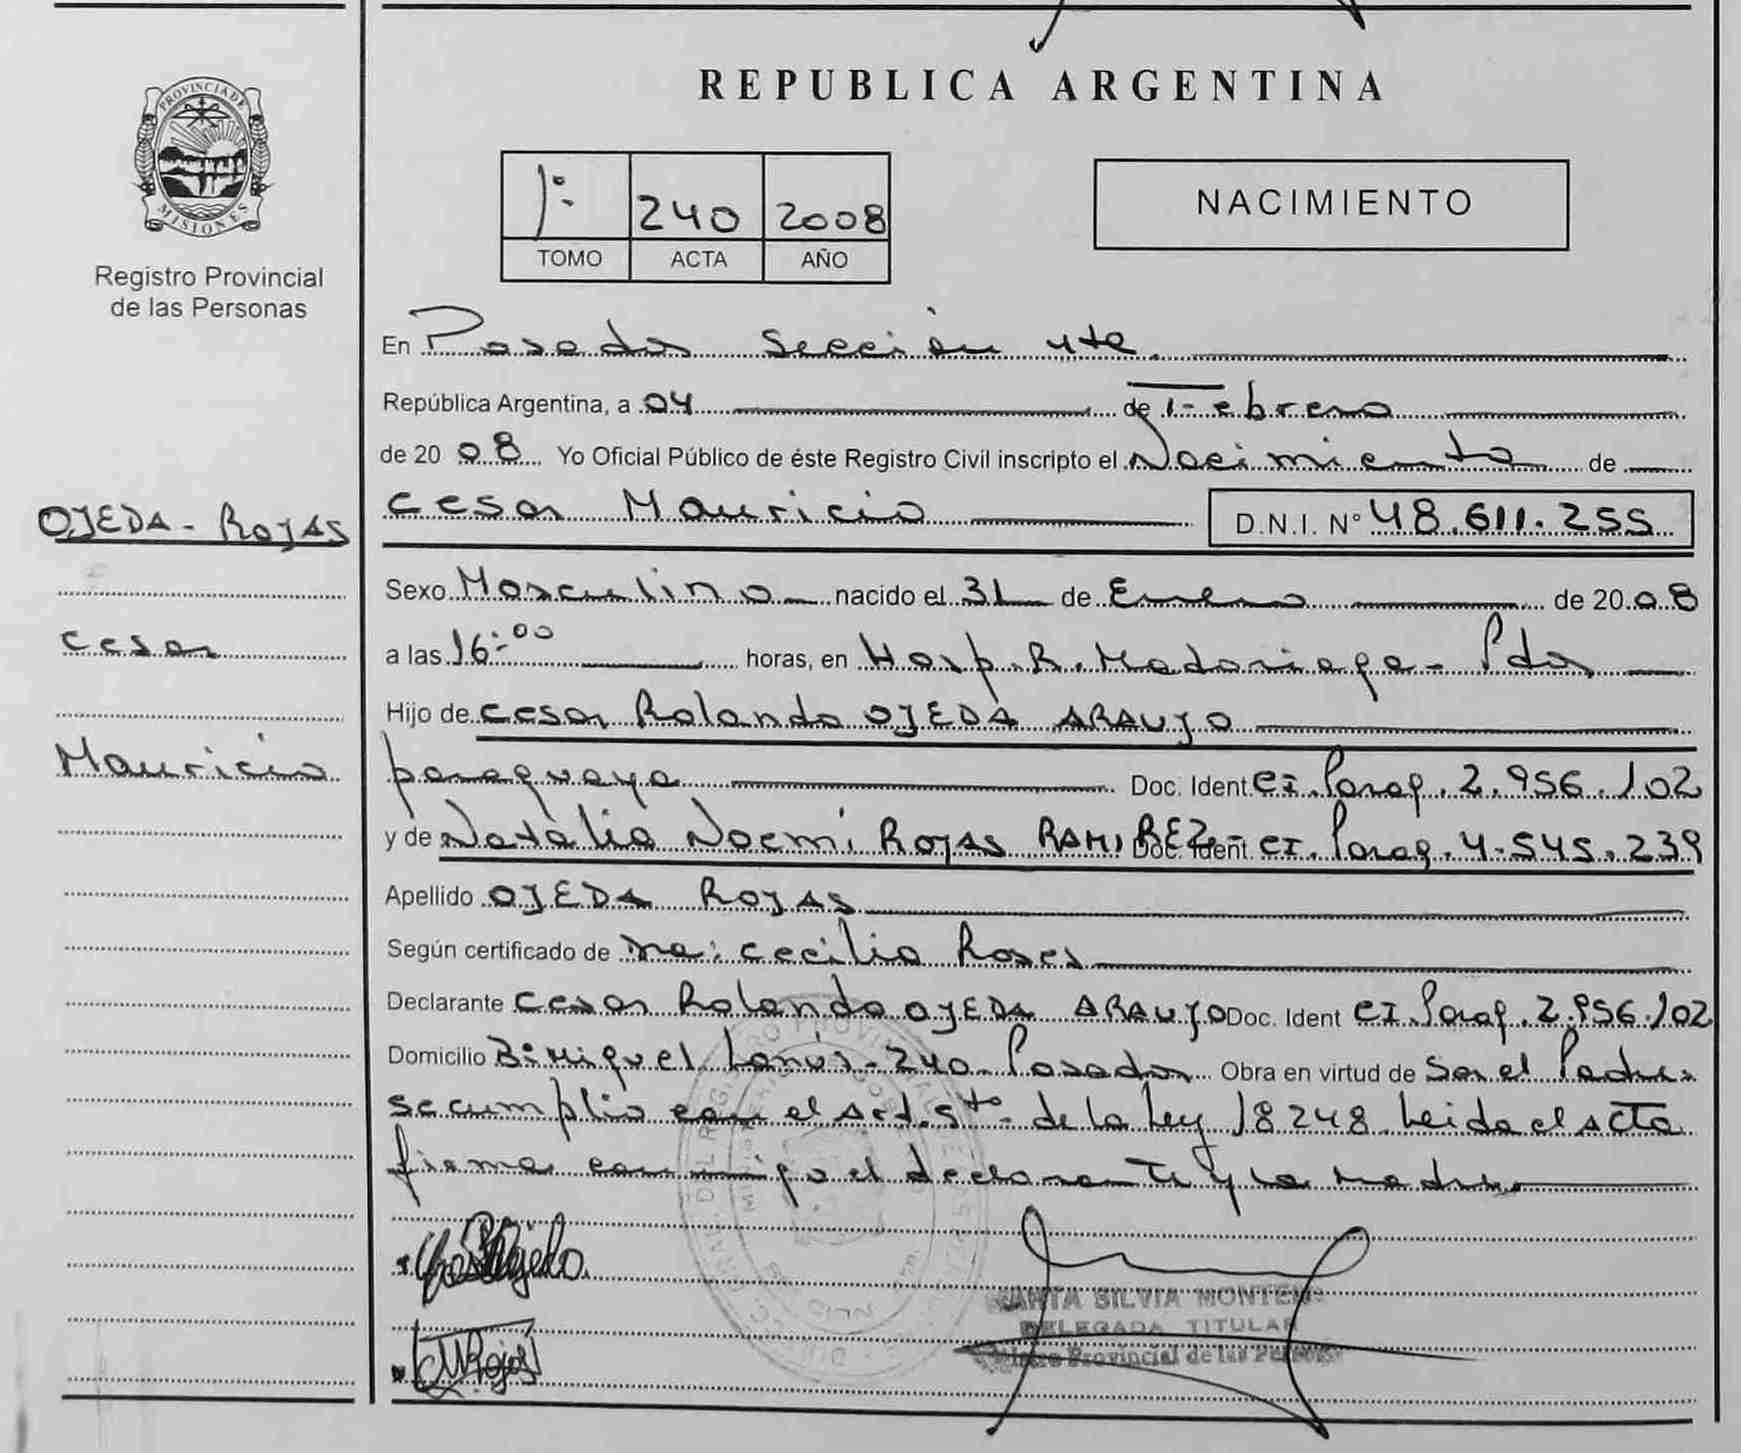 REPUBLICA ARGENTINA
PROVINCIA DE
MISIONES
Registro Provincial
de las Personas
1º 240 2008
TOMO ACTA AÑO
NACIMIENTO
En Posadas Sección 4ta.
República Argentina, a 04 de Febrero
de 20 08 Yo Oficial Público de éste Registro Civil inscripto el Nacimiento de
OJEDA - ROJAS
Cesar Mauricio D.N.I. Nº 48.611.255
Sexo Masculino nacido el 31 de Enero de 20 08
Cesar
a las 16:00 horas, en Hosp. R. Madariaga - Pdas
Hijo de Cesar Rolando OJEDA ARAUJO
Mauricio
paraguaya Doc. Ident. CI. Parag. 2.956.102
y de Natalia Noemi Rojas RAMIREZ Doc. Ident. CI. Parag. 4.545.239
Apellido OJEDA ROJAS
Según certificado de Cecilia Roses
Declarante Cesar Rolando OJEDA ARAUJO Doc. Ident CI. Parag. 2.956.102
Domicilio Bº Miguel Lanús - 240 - Posadas Obra en virtud de Ser el Padre.
se cumplio con el Art. 5to. de la Ley 18248. Leida el acta
firma conmigo el declarante y la madre
SILVIA
DELEGADA TITULAR
Provincial de las